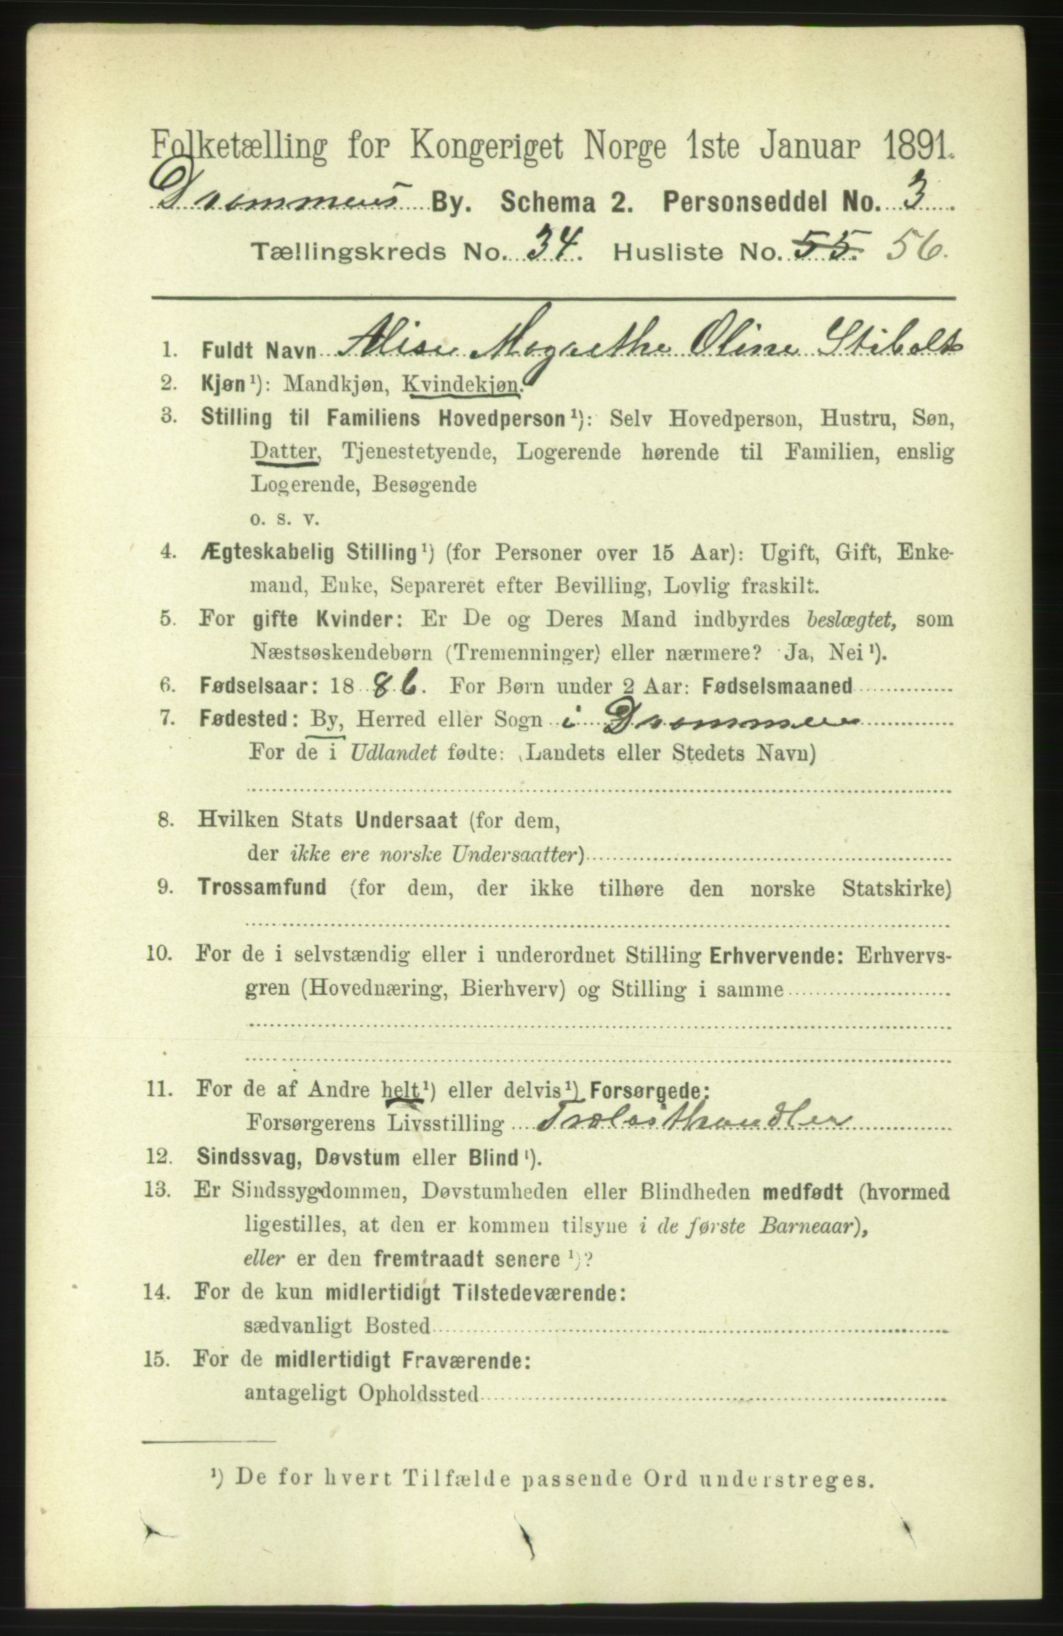 Folketælling for Kongeriget Norge 1ste Januar 1891.
Drammens By. Schema 2. Personseddel No. 3.
Tællingskreds No. 34. Husliste No. 55. 56.
1. Fuldt Navn Alise Magrethe Oline Stibolt
2. Kjøn¹): Mandkjøn, Kvindekjøn.
3. Stilling til Familiens Hovedperson¹): Selv Hovedperson, Hustru, Søn,
Datter, Tjenestetyende, Logerende hørende til Familien, enslig
Logerende, Besøgende
o. s. v.
4. Ægteskabelig Stilling¹) (for Personer over 15 Aar): Ugift, Gift, Enke-
mand, Enke, Separeret efter Bevilling, Lovlig fraskilt.
5. For gifte Kvinder: Er De og Deres Mand indbyrdes beslægtet, som
Næstsøskendebørn (Tremenninger) eller nærmere? Ja, Nei¹).
6. Fødselsaar: 1886. For Børn under 2 Aar: Fødselsmaaned
7. Fødested: By, Herred eller Sogn i Drammen
For de i Udlandet fødte: (Landets eller Stedets Navn)
8. Hvilken Stats Undersaat (for dem,
der ikke ere norske Undersaatter)
9. Trossamfund (for dem, der ikke tilhøre den norske Statskirke)
10. For de i selvstændig eller i underordnet Stilling Erhvervende: Erhvervs-
gren (Hovednæring, Bierhverv) og Stilling i samme
11. For de af Andre helt¹) eller delvis¹) Forsørgede:
Forsørgerens Livsstilling Trælasthandler
12. Sindssvag, Døvstum eller Blind¹).
13. Er Sindssygdommen, Døvstumheden eller Blindheden medfødt (hvormed
ligestilles, at den er kommen tilsyne i de første Barneaar),
eller er den fremtraadt senere ¹)?
14. For de kun midlertidigt Tilstedeværende:
sædvanligt Bosted
15. For de midlertidigt Fraværende:
antageligt Opholdssted
¹) De for hvert Tilfælde passende Ord understreges.